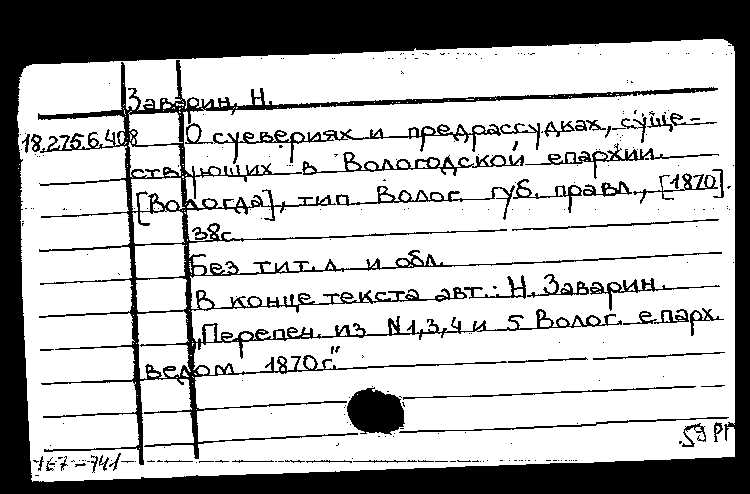 Заварин, Н.
18.275.6.408 О суевериях и предрассудках, суще-
ствующих в Вологодской епархии.
[Вологда], тип. Волог. губ. правл., [1870].
38с.
Без тит. л. и обл.
В конце текста авт.: Н. Заварин.
„Перепеч. из N1,3,4 и 5 Волог. епарх.
ведом. 1870г."
59 РГ
167-741